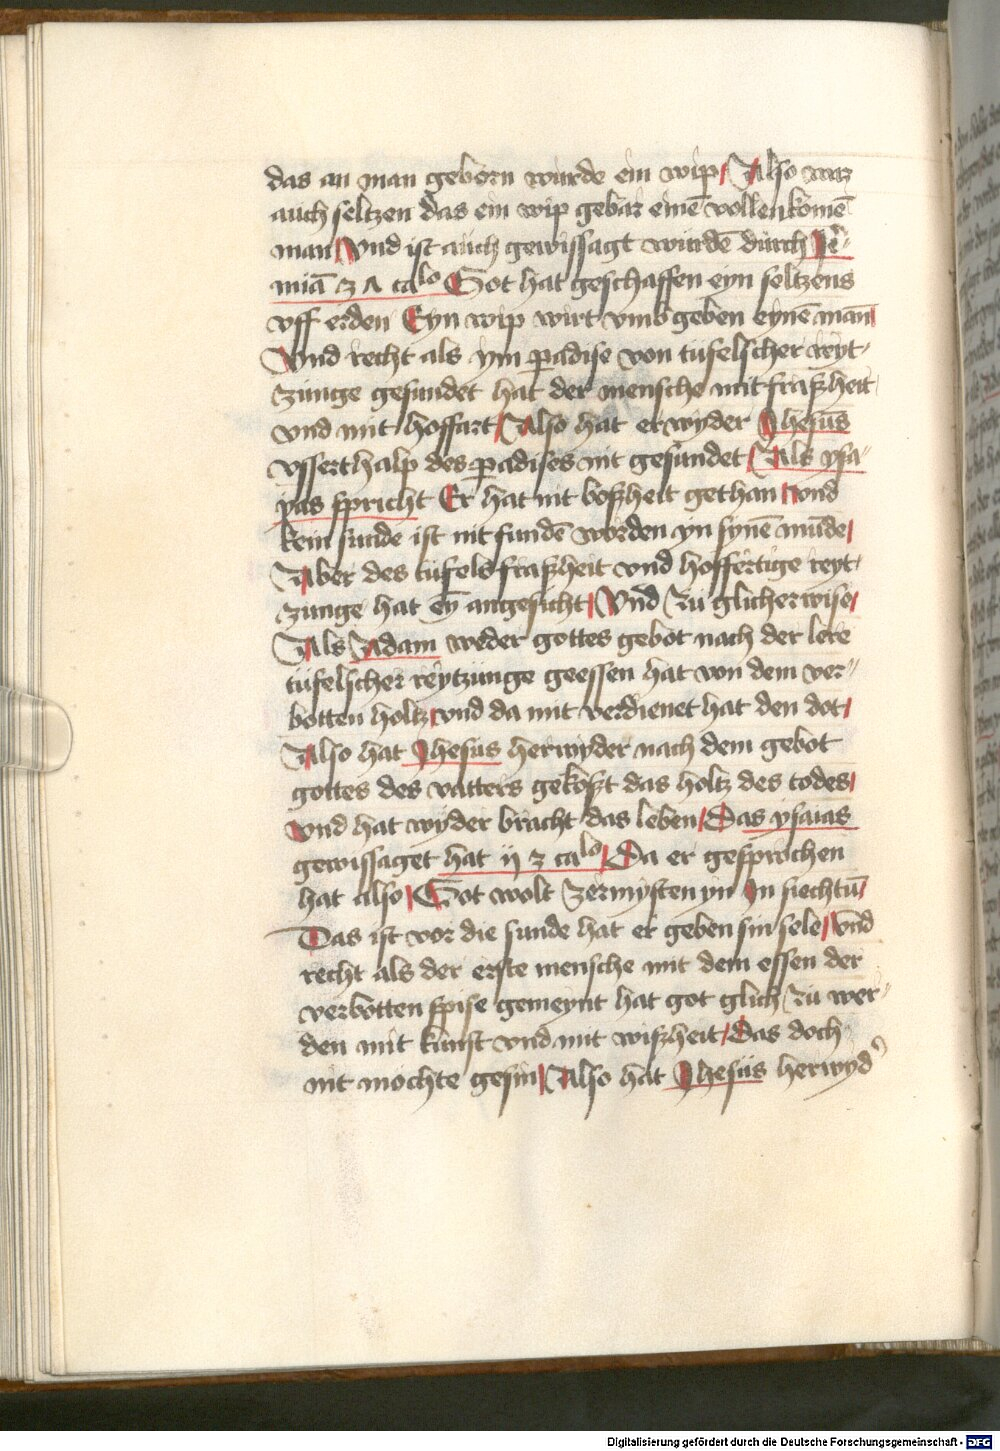 das an man geborn wurde ein wip / Also waz
auch seltzen das ein wip gebar einē vollenkomē
man / Vnd ist auch gewissagt wurdē durch Je͛-
miā 3 1 caᶫᵒ Got hat geschaffen eyn seltzens
vff erden Eyn wip wirt vmbgeben eynē man /
Vnd recht als ym ꝑadise von tufelscher reyt-
zunge gesundet hat der mensche mit fraßheit
vnd mit hoffart / Also hat er wyder Jhesus
vsserthalp des ꝑadises nit gesundet / Als ysa-
yas spricht Er hat nit boßheit gethan / vnd
kein sunde ist nit fundē worden yn synē mūde /
Aber des tufels fraßheit vnd hoffertige reyt-
zunge hat ey̅ angesicht / Vnd zu glicherwise /
Als Adam weder gottes gebot nach der lere
tufelscher reytzunge geessen hat von dem ver-
botten holtz / vnd da mit verdienet hat den dot /
Also hat Jhesus herwyder nach dem gebot
gottes des vatters gekoßt das holtz des todes /
vnd hat wyder bracht das leben / Das ysaias
gewissaget hat ij 3 caᶫᵒ / Da er gesprochen
hat also / Got wolt zermysten yn Jn siechtū /
Das ist vor die sunde hat er geben sin sele / Vnd
recht als der erste mensche mit dem essen der
verbotten spise gemeynt hat got glich zu wer-
den mit kunst vnd mit wißheit / Das doch
nit mochte gesin / Also hat Jhesus herwyd͛
Digitalisierung gefördert durch die Deutsche Forschungsgemeinschaft - DFG